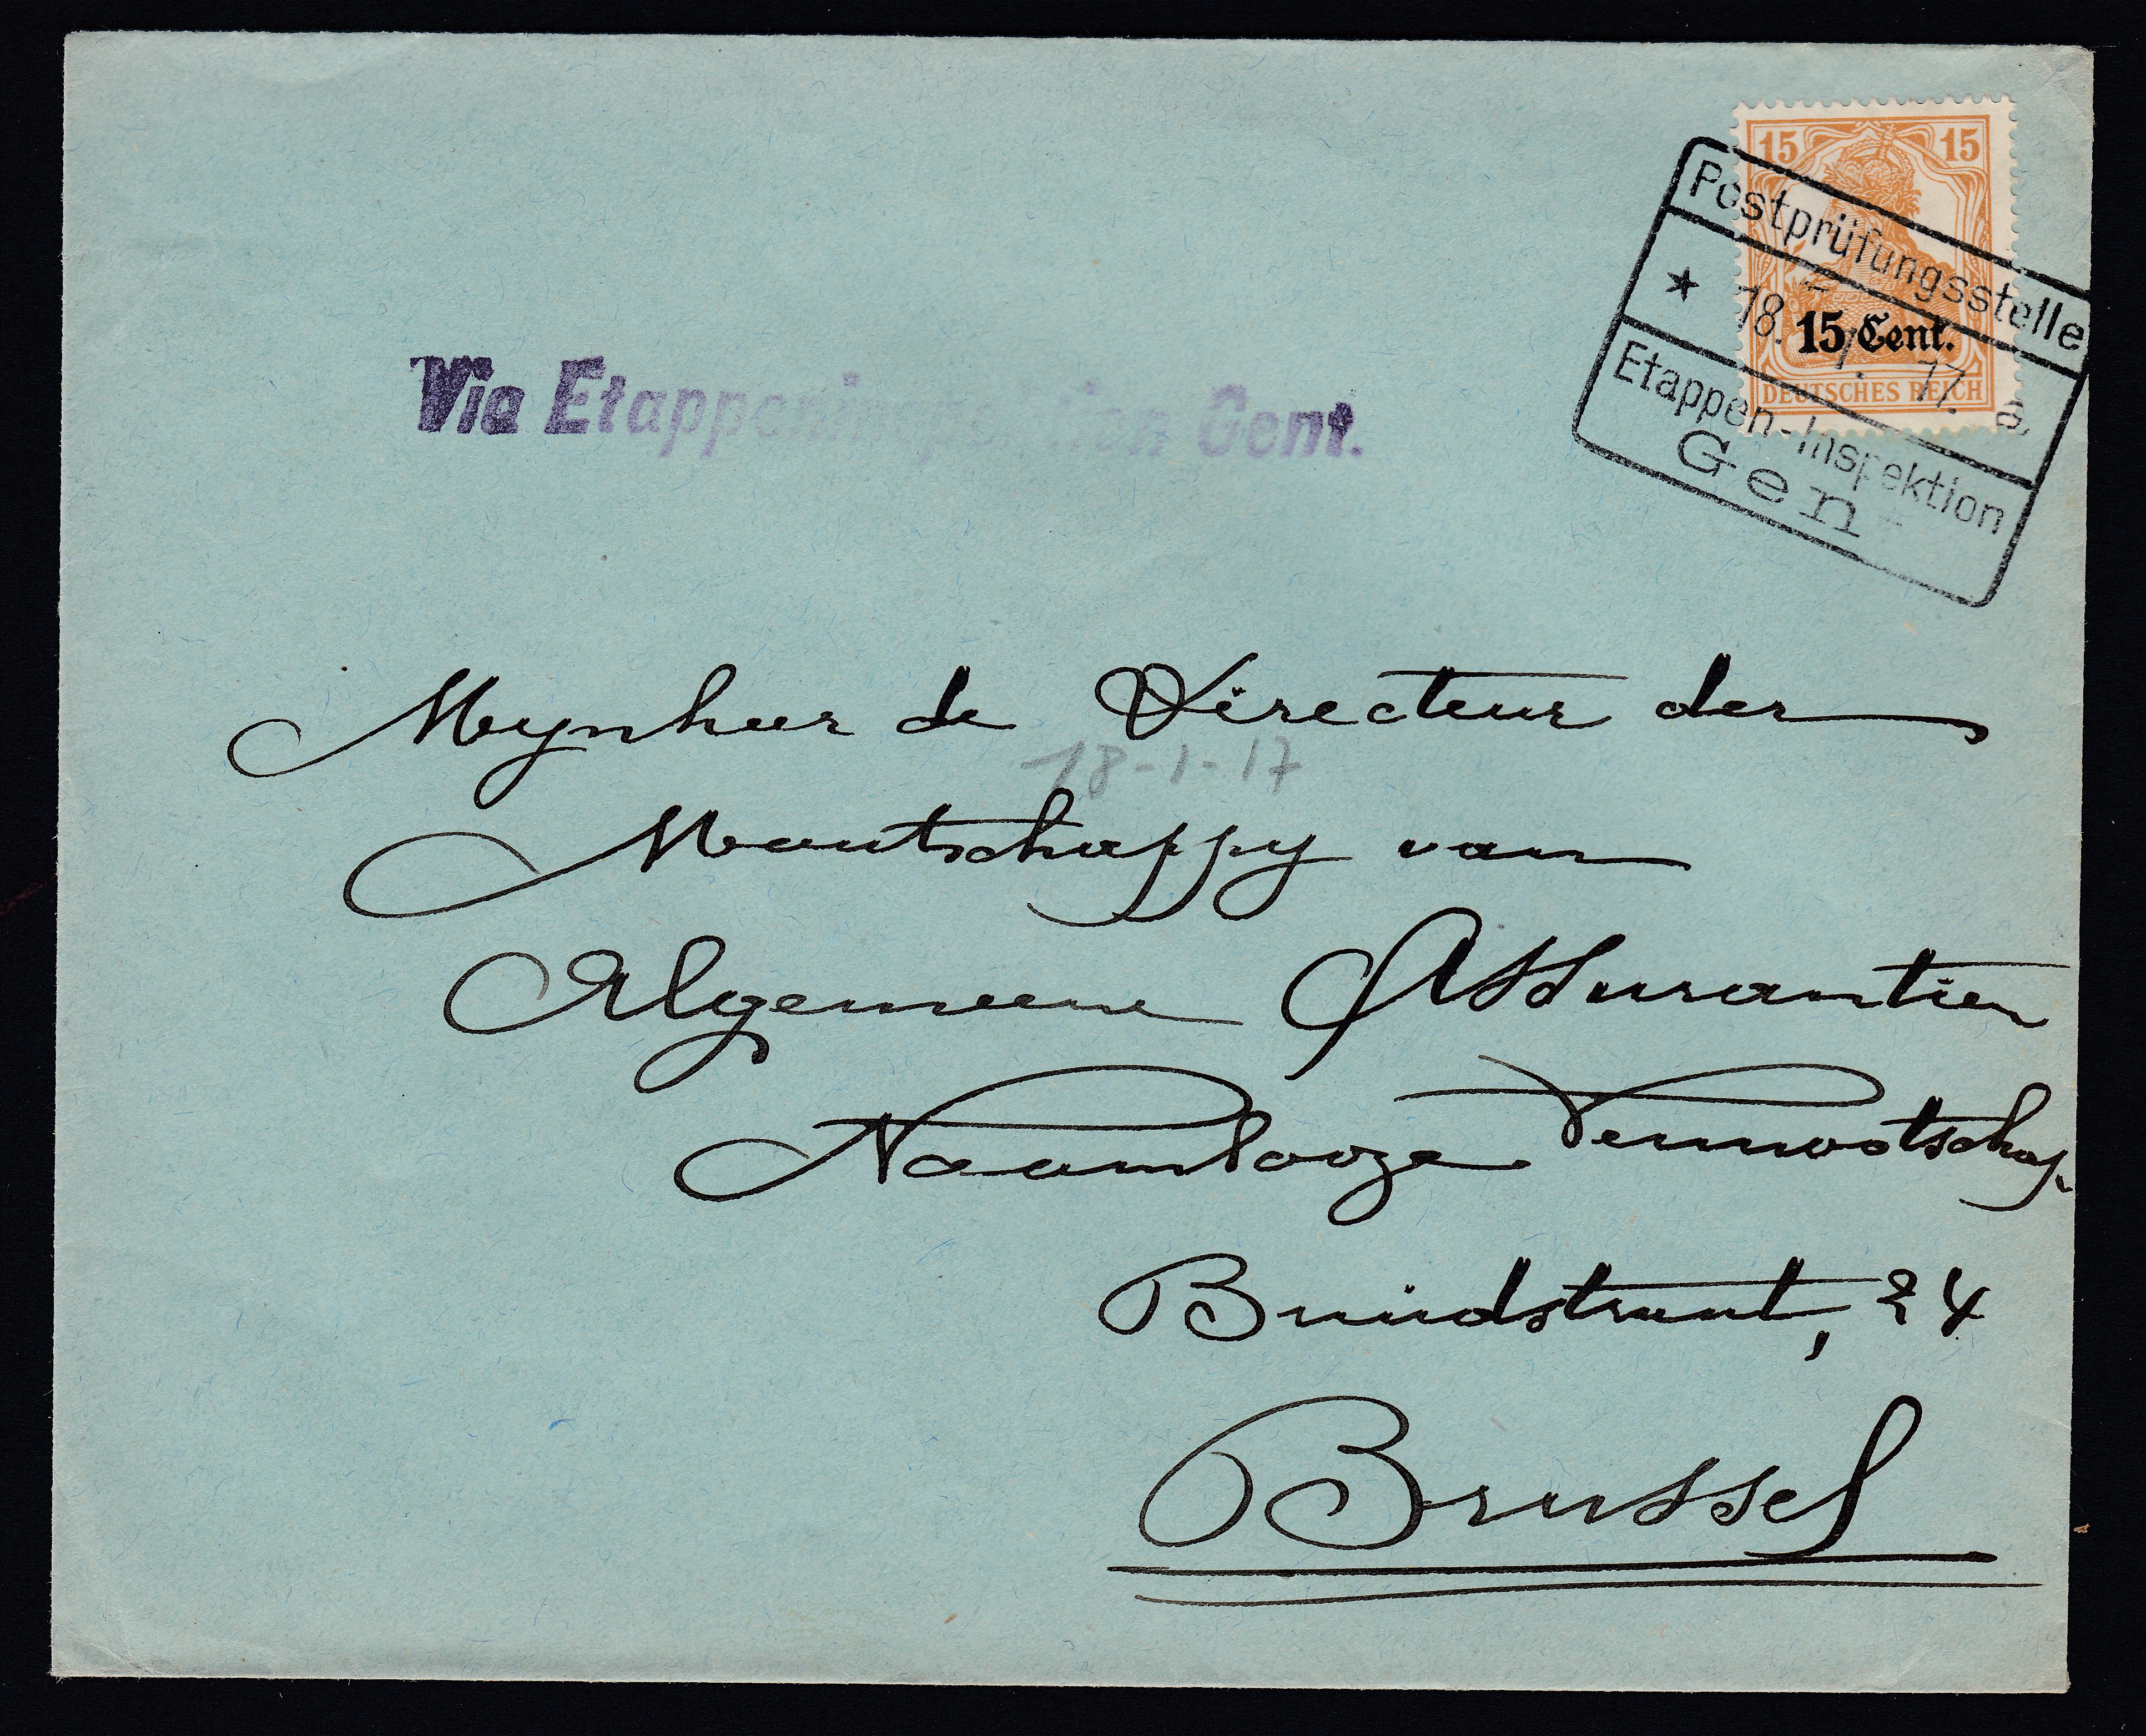 15 15
15 Cent.
DEUTSCHES REICH
Postprüfungsstelle
* 18. 1. 17. a
Etappen-Inspektion
Gent
Via Etappeninspektion Gent.
Mynheer de Directeur der
18-1-17
Maatschappy van
Algemeene Assurantien
Naamlooze Vennootschap
24
Brussel